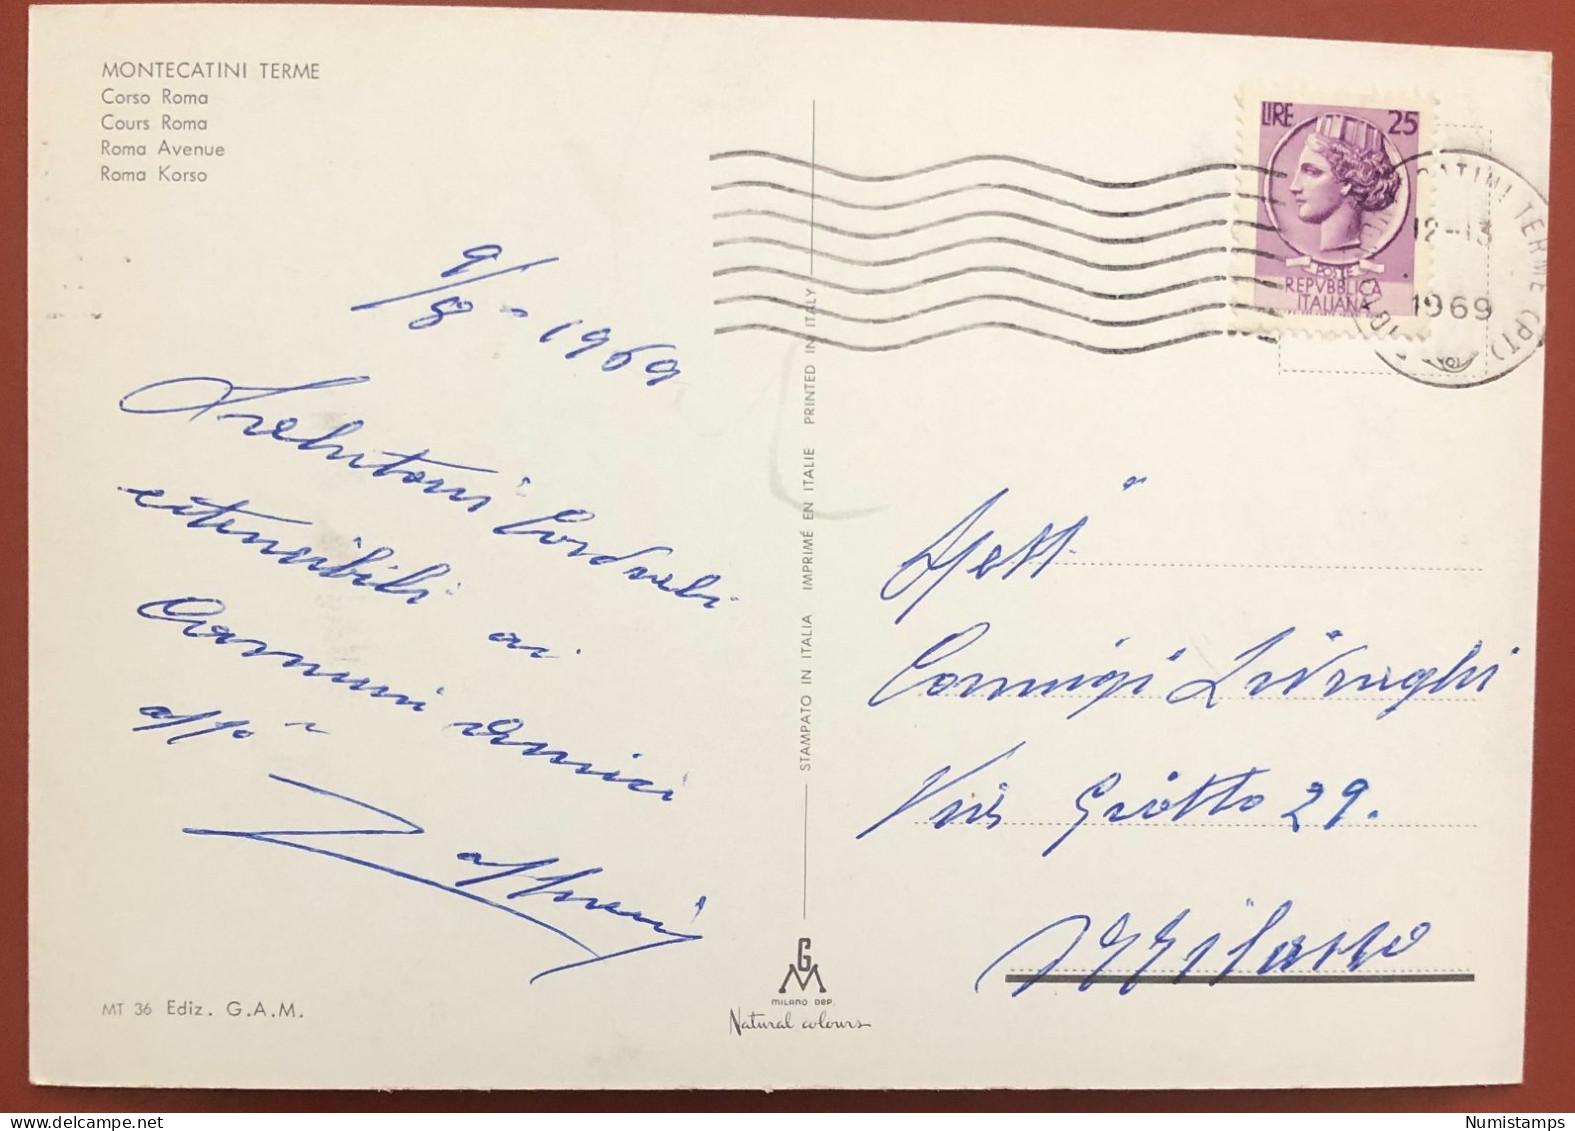 MONTECATINI TERME
Corso Roma
Cours Roma
Roma Avenue
Roma Korso
9/8 - 1969
cordiali
estensibili ai
Comuni amici
MT 36 Ediz. G.A.M.
STAMPATO IN ITALIA IMPRIMÉ EN ITALIE PRINTED IN ITALY
GM
MILANO DEP.
Natural colours
LIRE 25
POSTE
REPVBBLICA
ITALIANA
CATINI TERME (PT)
12-13
1969
Spett.
Coniugi
Via Giotto 29.
Milano
Numistamps